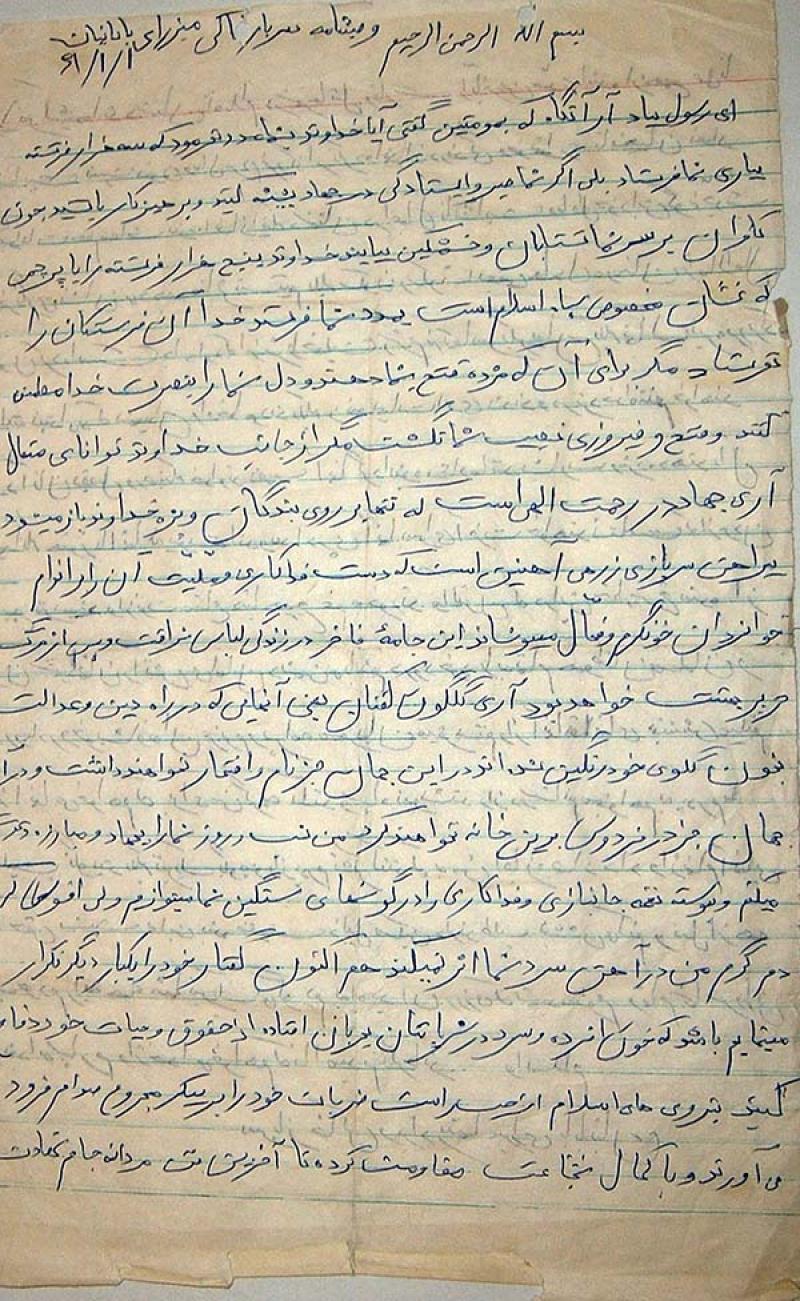 بسم الله الرحمن الرحیم وصیتنامه سرباز خاکی میرزای بابائیان
۶۱/۱/۱
ای رسول بیاد آر آنگاه که بمومنین گفتی آیا خداوند بشما مدد نفرمود که سه هزار فرشته
بیاری شما فرستاد بلی اگر شما صبر و ایستادگی در جهاد پیشه کنید و پرهیزکار باشید چون
کافران بر سر شما شتابان و خشمگین بیایند خداوند پنج هزار فرشته را با پرچمی
که نشان مخصوص سپاه اسلام است بمدد شما فرستد خدا آن فرستگان را
نفرستاد مگر برای آن که مژده فتح بشما دهند و دل شما را بنصرت خدا مطمئن
کنند و فتح و فیروزی نصیب شما نگشت مگر از جانب خداوند توانای متعال
آری جهاد در رحمت الهی است که تنها بر روی بندگان ویژه خداوند باز میشود
پیراهن سربازی زرهی آهنین است که دست فداکاری و فعلیت آن را بر اندام
جوانمردان خونگرم و فعال میپوشاند این جامهٔ فاخر در زندگی لباس شرافت و پس از مرگ
حریر بهشت خواهد بود آری گلگون کفنان یعنی آنهایی که در راه دین و عدالت
بخون گلوی خود رنگین شده اند در این جهان جز نام و افتخار نخواهند داشت و در آن
جهان جز در فردوس برین خانه نخواهند کرد من شب و روز شما را بجهاد و مبارزه دعوت
میکنم و پیوسته نغمه جانبازی و فداکاری را در گوشهای سنگین شما مینوازم ولی افسوس که
دم گرم من در آهن سرد شما اثر نمیکند هم اکنون گفتار خود را یکبار دیگر تکرار
مینمایم باشد که خون افسرده و سرد در شریانتان بجریان افتاده از حقوق و حیات خود دفاع
کنید نیروی های اسلام ضربات خود را بر پیکر مجروح صدام فرود
می آورند و با کمال شجاعت مقاومت کرده تا آخرین نفس مردانه جام شهادت